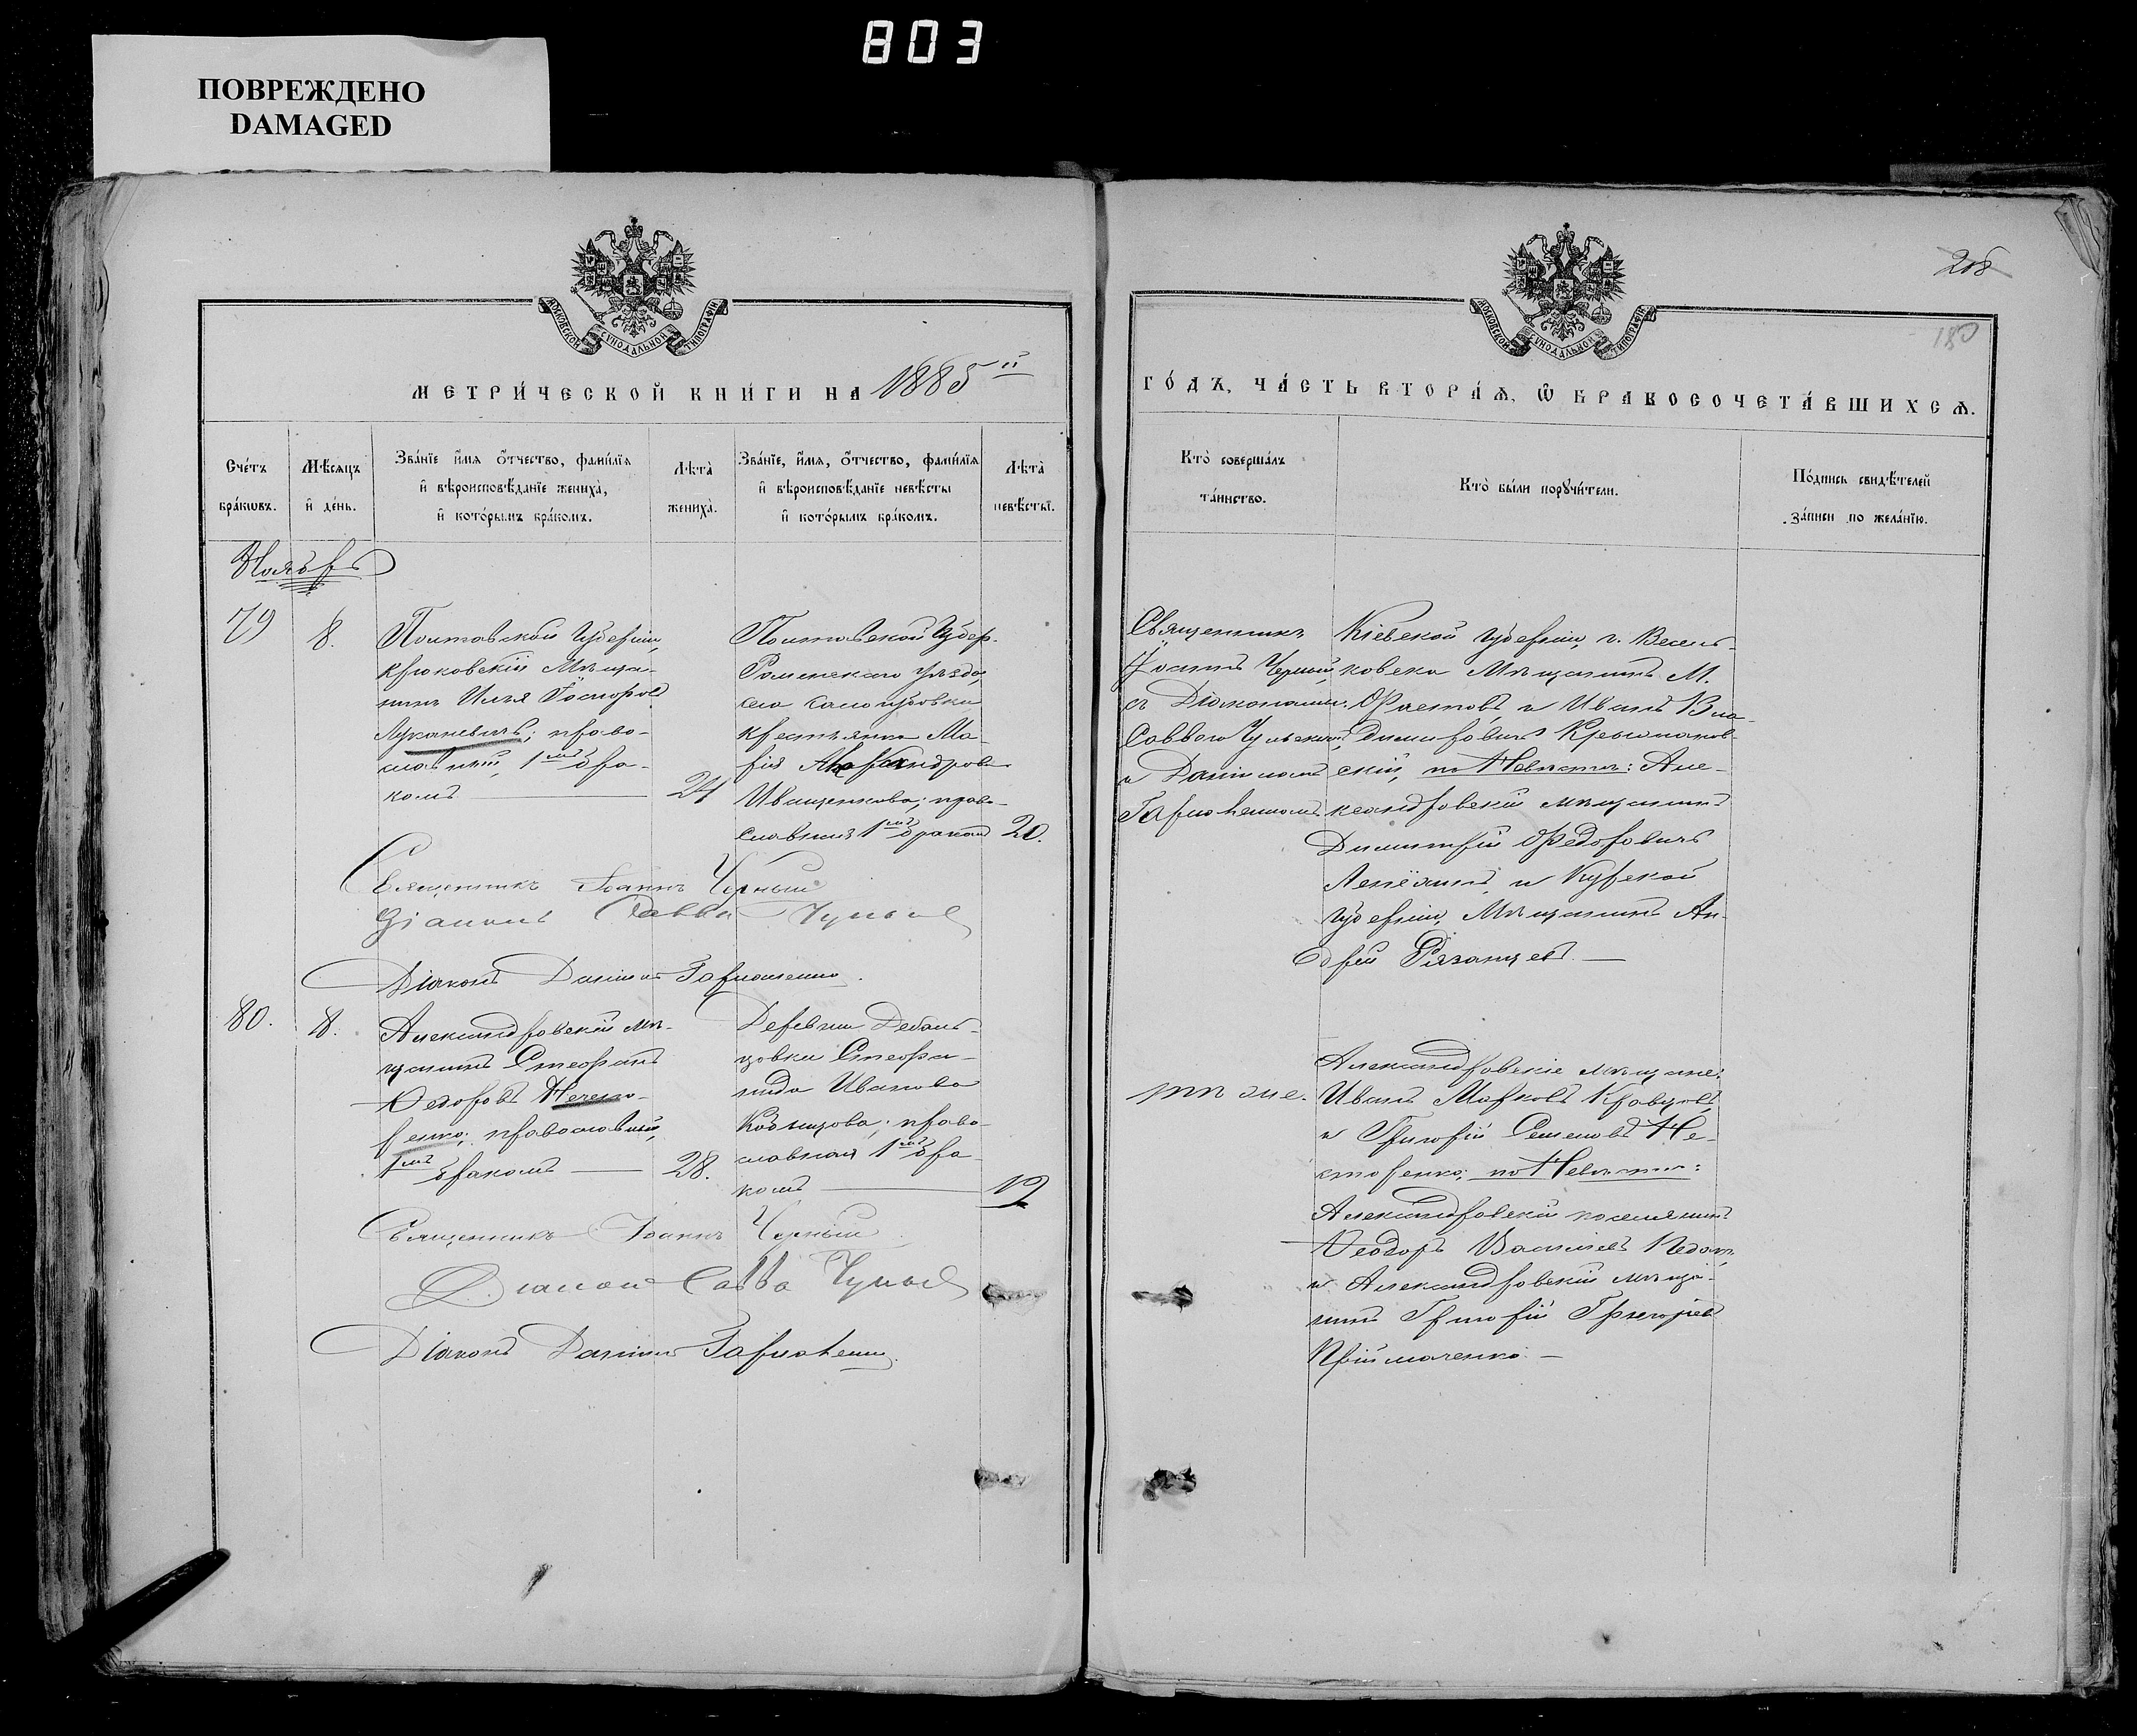 803
ПОВРЕЖДЕНО
DAMAGED
МОСКОВСКОЙ СѴНОДАЛЬНОЙ ТИПОГРАФІИ
МЕТРИ́ЧЕСКОЙ КНИ́ГИ НА 1885 й
Сче́тъ бра́кѡвъ.
Мѣ́сяцъ и҆ де́нь.
Зва́нїе и҆́мѧ ѻ҆́тчество, фамѝлїѧ и҆ вѣроисповѣ́данїе жениха̀, и҆ кото́рымъ бра́комъ.
Лѣ́та жениха̀.
Зва́нїе, и҆́мѧ, ѻ҆́тчество, фамѝлїѧ и҆ вѣроисповѣ́данїе невѣ́сты и҆ кото́рымъ бра́комъ.
Лѣ́та невѣ́сты.
Ноябрь
79
8.
Полтавской губерніи,
Крюковскій мѣща-
нинъ Илья
Лукашевичъ; право-
славный, 1мъ бра-
комъ
24
Полтавской губер.
Роменскаго уѣзда,
села
крестьянка Ма-
рія Александрова
Иващенкова; право-
славная 1мъ бракомъ
20.
Священникъ Іоаннъ Черный
Діаконъ Савва
Діаконъ Даніилъ
80.
8.
Александровскій мѣ-
щанинъ Стефанъ
Ѳедоровъ
православный,
1мъ бракомъ
28.
Деревни Дебаль-
цовки Стефа-
нида Иванова
право-
славная 1мъ бра-
комъ
19
Священникъ Іоаннъ Черный
Діаконъ Савва
Діаконъ Даніилъ
218
180
МОСКОВСКОЙ СѴНОДАЛЬНОЙ ТИПОГРАФІИ
ГО́ДЪ, ЧА́СТЬ ВТОРА́Ѧ, Ѽ БРАКОСОЧЕТА́ВШИХСѦ.
Кто̀ соверша́лъ та́инство.
Кто̀ бы́ли порꙋчи́тели.
По́дпись свидѣ́телей за́писи по жела́нїю.
Священникъ
Іоаннъ Черный,
съ Діаконами:
Саввою
и Даніиломъ
Кіевской губерніи, г. Василь-
ковска мѣщанинъ М.
и Иванъ Вла-
димировичъ
скій, по невѣстѣ: Але-
ксандровскій мѣщанинъ
Димитрій Ѳедоровичъ
и Курской
губерніи, мѣщанинъ Ан-
дрей Рязанцевъ.
тѣ же.
Александровскіе мѣщане:
Иванъ Марковъ Кравцовъ,
и Григорій Семеновъ Не-
стеренко; по невѣстѣ:
Александровскій поселянинъ
Ѳеодоръ Васильевъ
и Александровскій мѣща-
нинъ Григорій Григорьевъ
Пріймаченко.